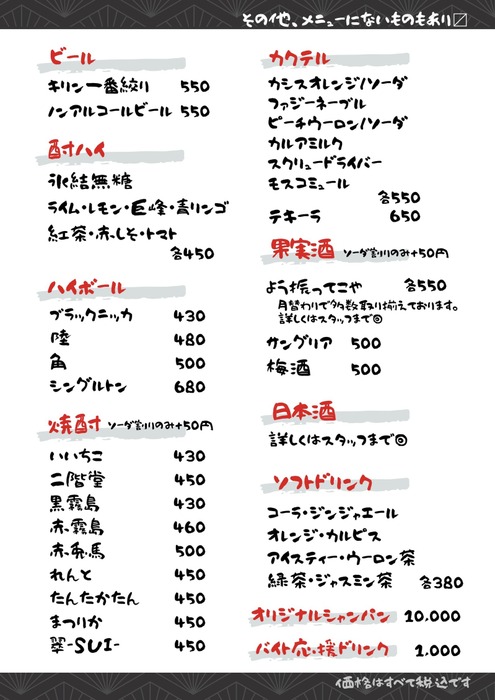 その他、メニューにないものもあり〼
ビール
キリン一番絞り 550
ノンアルコールビール 550
酎ハイ
氷結無糖
ライム・レモン・巨峰・青リンゴ
紅茶・赤しそ・トマト
各450
ハイボール
ブラックニッカ 430
陸 480
角 500
シングルトン 680
焼酎 ソーダ割りのみ+50円
いいちこ 430
二階堂 450
黒霧島 430
赤霧島 460
赤兎馬 500
れんと 450
たんたかたん 450
まつりか 450
翠-SUI- 450
カクテル
カシスオレンジ/ソーダ
ファジーネーブル
ピーチウーロン/ソーダ
カルアミルク
スクリュードライバー
モスコミュール
各550
テキーラ 650
果実酒 ソーダ割りのみ+50円
よう振ってこや 各550
月替わりで多数取り揃えております。
詳しくはスタッフまで◎
サングリア 500
梅酒 500
日本酒
詳しくはスタッフまで◎
ソフトドリンク
コーラ・ジンジャエール
オレンジ・カルピス
アイスティー・ウーロン茶
緑茶・ジャスミン茶 各380
オリジナルシャンパン 10.000
バイト応援ドリンク 1.000
価格はすべて税込です